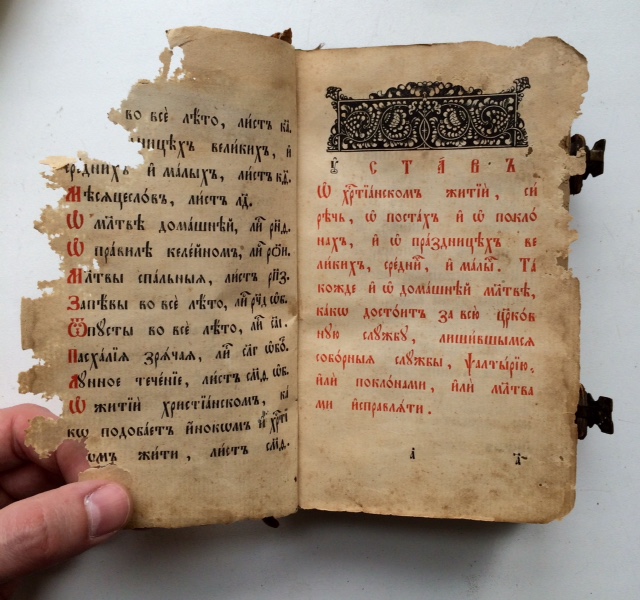 во всѐ лѣ́то, ли́стъ к҃а.
ни́цѣхъ вели́кихъ, и҆
сре́днихъ и҆ ма́лыхъ, ли́стъ к҃д.
Мѣ́сяцесло́въ, ли́стъ л҃д.
Ѡ мл҃твѣ дома́шнѣй, ли́ст рн҃д.
Ѡ пра́вилѣ келе́йномъ, ли́ст ро҃и.
Мл҃твы спа́льныя, ли́стъ рп҃з.
Запѣ́вы во всѐ лѣ́то, ли́ст рч҃д ѡб.
Ѿпусты во всѐ лѣ́то, ли́ст
Пасха́лїя зря́чая, ли́ст сл҃г ѡбо.
Лу́нное тече́нїе, ли́стъ см҃д, ѡб.
Ѡ житїй христїа́нскомъ, ка́
кѡ подоба́етъ и҆́нокѡмъ и҆ хр҃тї
ѡмъ жи́ти, ли́стъ см҃д.
У҆ста́въ
Ѡ хр҃тїа́нскомъ житїй, си́
рѣчь, ѡ поста́хъ и҆ ѡ покло́
нахъ, и҆ ѡ пра́здницѣхъ ве
ли́кихъ, сре́дни, и҆ ма́лы. Та
кожде и҆ ѡ дома́шнѣй мл҃твѣ,
ка́кѡ досто́итъ за всю̀ цр҃ко́в
ную слу́жбу, лиши́вшымся
собо́рныя слу́жбы, ѱалты́рїю,
и҆лѝ покло́нами, и҆лѝ мл҃тва
ми и҆справля́ти.
а҃